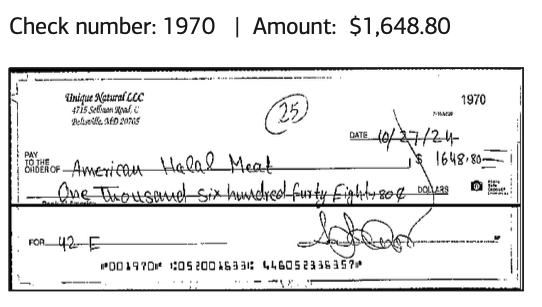 Check number: 1970 | Amount: $1,648.80
Unique Natural LLC
4715 Sellman Road, C
Beltsville, MD 20705
25
1970
DATE 10/27/24
PAY
TO THE
ORDER OF American Halal Meat $ 1648.80
One Thousand six hundred furty Eight, 80¢ DOLLARS
FOR 42-E
⑈001970⑈ ⑆052001633⑆ 446052336357⑈